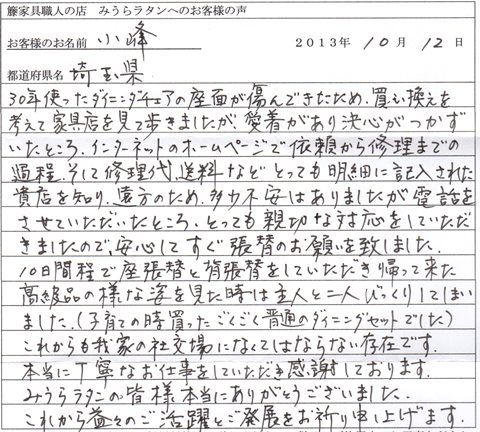 籐家具職人の店 みうらラタンへのお客様の声
お客様のお名前 小峰 2013年 10月 12日
都道府県名 埼玉県
30年使ったダイニングチェアの座面が傷んできたため、買い換えを
考えて家具店を見て歩きましたが、愛着があり決心がつかず
いたところ、インターネットのホームページで依頼から修理までの
過程、そして修理代、送料など とっても明細に記入された
貴店を知り、遠方のため、多少不安はありましたが電話を
させていただいたところ、とっても親切な対応をしていただ
きましたので、安心して すぐ張替のお願いを致しました。
10日間程で座張替と背張替をしていただき帰って来た
高級品の様な姿を見た時は主人と二人びっくりしてしまい
ました。(子育ての時買ったごくごく普通のダイニングセットでした)
これからも我家の社交場になくてはならない存在です。
本当に丁寧なお仕事をしていただき感謝しております。
みうらラタンの皆様本当にありがとうございました。
これから益々のご活躍とご発展をお祈り申し上げます。